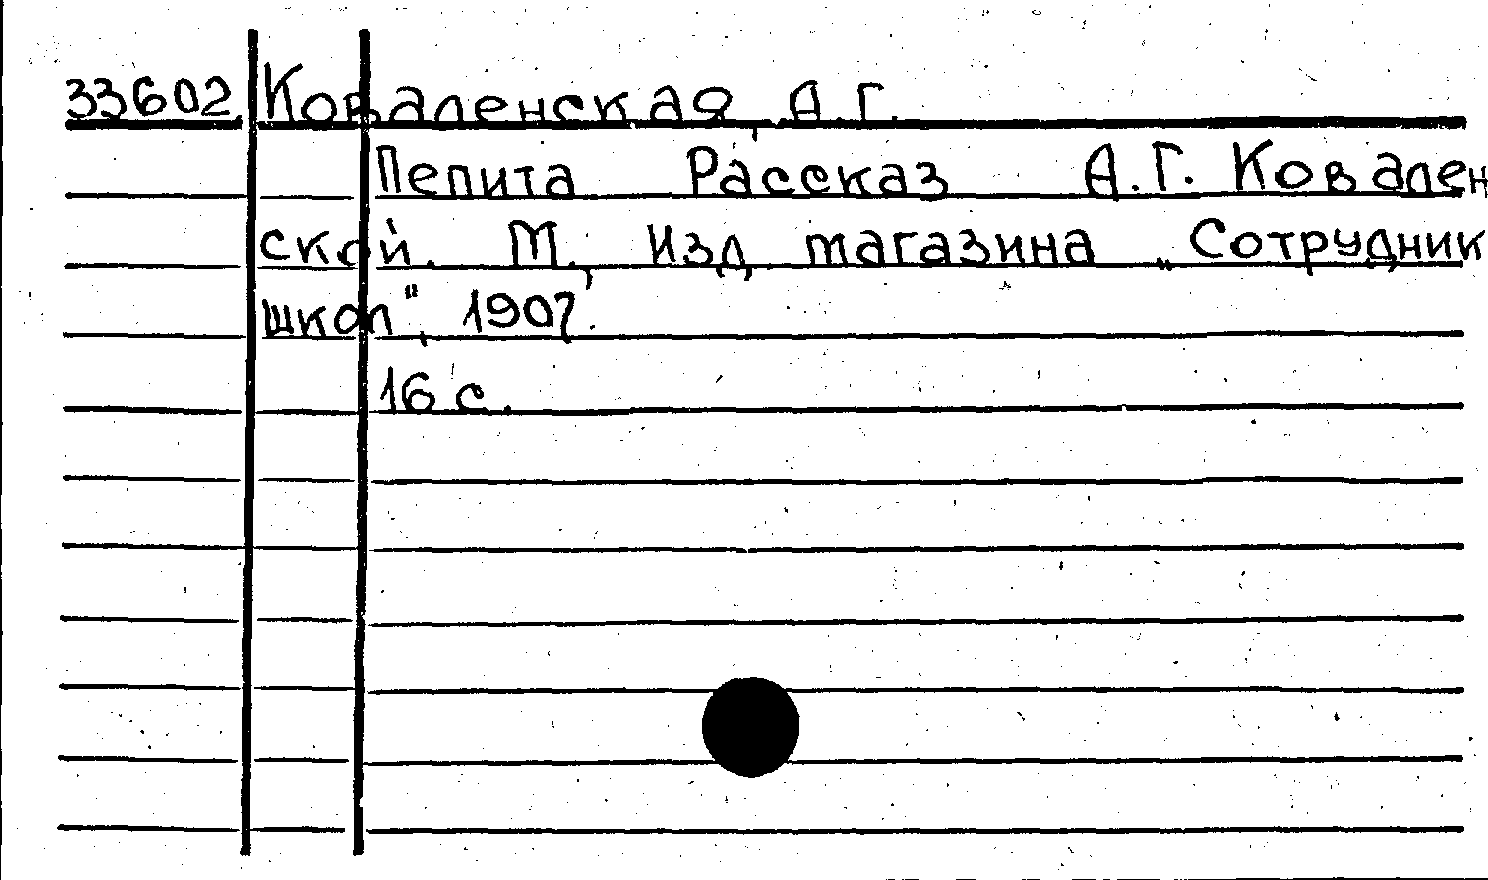 33602 Коваленская, А.Г.
Пепита Рассказ А.Г. Ковален
ской. М., Изд. магазина „Сотрудник
школ", 1907.
16 с.